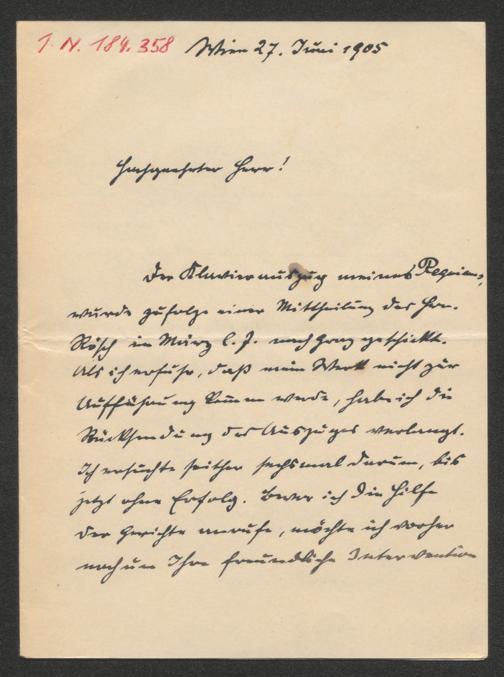 I. N. 184.358 Wien 27. Juni 1905
Hochgeehrter Herr!
Der Klavierauszug meines Requiems,
wurde zufolge einer Mittheilung des Hrn.
Rösch im März l. J. nach Graz geschickt.
Als ich erfuhr, daß mein Werk nicht zur
Aufführung kommen werde, habe ich die
Rücksendung des Auszuges verlangt.
Ich ersuchte seither sechsmal darum, bis
jetzt ohne Erfolg. Bevor ich die Hilfe
der Gerichte anrufe, möchte ich vorher
noch um Ihre freundliche Intervention